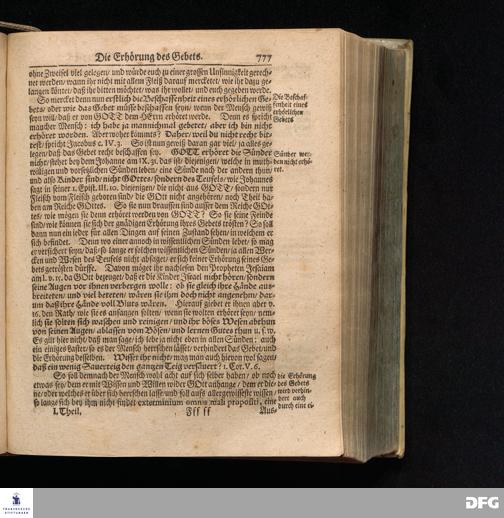 Die Erhörung des Gebets. 777
ohne Zweifel viel gelegen/ und würde euch zu einer grossen Unsinnigkeit gerech-
net werden/ wann ihr nicht mit allem Fleiß darauf mercketet/ wie ihr dazu ge-
langen köntet/ daß ihr bitten möchtet/ was ihr wollet/ und euch gegeben werde.
So mercket denn nun erstlich die Beschaffenheit eines erhörlichen Ge-
bets/ oder wie das Gebet müsse beschaffen seyn/ wenn der Mensch gewiß
seyn will/ daß er von GOTT dem HErrn erhöret werde. Denn es spricht
mancher Mensch: ich habe ja mannichmal gebetet/ aber ich bin nicht
erhöret worden. Aber woher kommts? Daher/ weil du nicht recht bit-
test/ spricht Jacobus c. IV. 3. So ist nun gewiß daran gar viel/ ja alles ge-
legen/ daß das Gebet recht beschaffen sey. GOTT erhöret die Sünder
nicht/ stehet bey dem Johanne am IX. 31. das ist/ diejenigen/ welche in muth-
willigen und vorsetzlichen Sünden leben/ eine Sünde nach der andern thun/
und also Kinder sind/ nicht GOttes/ sondern des Teufels/ wie Johannes
sagt in seiner 1. Epist. III. 10. diejenigen/ die nicht aus GOTT/ sondern nur
Fleisch vom Fleisch geboren sind/ die GOtt nicht angehören/ noch Theil ha-
ben am Reiche GOttes. So sie nun draussen sind ausser dem Reiche GOt-
tes/ wie mögen sie denn erhöret werden von GOTT? So sie seine Feinde
sind/ wie können sie sich der gnädigen Erhörung ihres Gebets trösten? So soll
dann nun ein jeder für allen Dingen auf seinen Zustand sehen/ in welchem er
sich befindet. Denn wo einer annoch in wissentlichen Sünden lebet/ so mag
er versichert seyn/ daß/ so lange er solchen wissentlichen Sünden/ ja allen Wer-
cken und Wesen des Teufels nicht absaget/ er sich keiner Erhörung seines Ge-
bets getrösten dürffe. Davon möget ihr nachlesen den Propheten Jesaiam
am I. v. 15. da GOtt bezeuget/ daß er die Kinder Israel nicht hören/ sondern
seine Augen vor ihnen verbergen wolle: ob sie gleich ihre Hände aus-
breiteten/ und viel beteten/ wären sie ihm doch nicht angenehm/ dar-
um daß ihre Hände voll Bluts wären. Hierauf giebet er ihnen aber v.
16. den Rath/ wie sie es anfangen solten/ wenn sie wolten erhöret seyn/ nem-
lich sie solten sich waschen und reinigen/ und ihr böses Wesen abthun
von seinen Augen/ ablassen vom Bösen/ und lernen Gutes thun u. s. w.
Es gilt hier nicht/ daß man sage/ ich lebe ja nicht eben in allen Sünden: auch
ein einiges Laster/ so es der Mensch herrschen lässet/ verhindert das Gebet/ und
die Erhörung desselben. Wisset ihr nicht/ mag man auch hievon wol sagen/
daß ein wenig Sauerteig den gantzen Teig versäuert? 1. Cor. V. 6.
So soll demnach der Mensch wohl acht auf sich selber haben/ ob noch
etwas sey/ dem er mit Wissen und Willen wider GOtt anhange/ dem er die-
ne/ oder welches er über sich herrschen lasse/ und soll aufs allergewisseste wissen/
so lange sich bey ihm nicht findet exterminium omnis mali propositi, eine
I. Theil. Fff ff Aus-
Die Beschaf-
fenheit eines
erhörlichen
Gebets
Sünder wer-
den nicht erhö-
ret.
die Erhörung
des Gebets
wird verhin-
dert auch
durch eine ei-
FRANCKESCHE
STIFTUNGEN
DFG